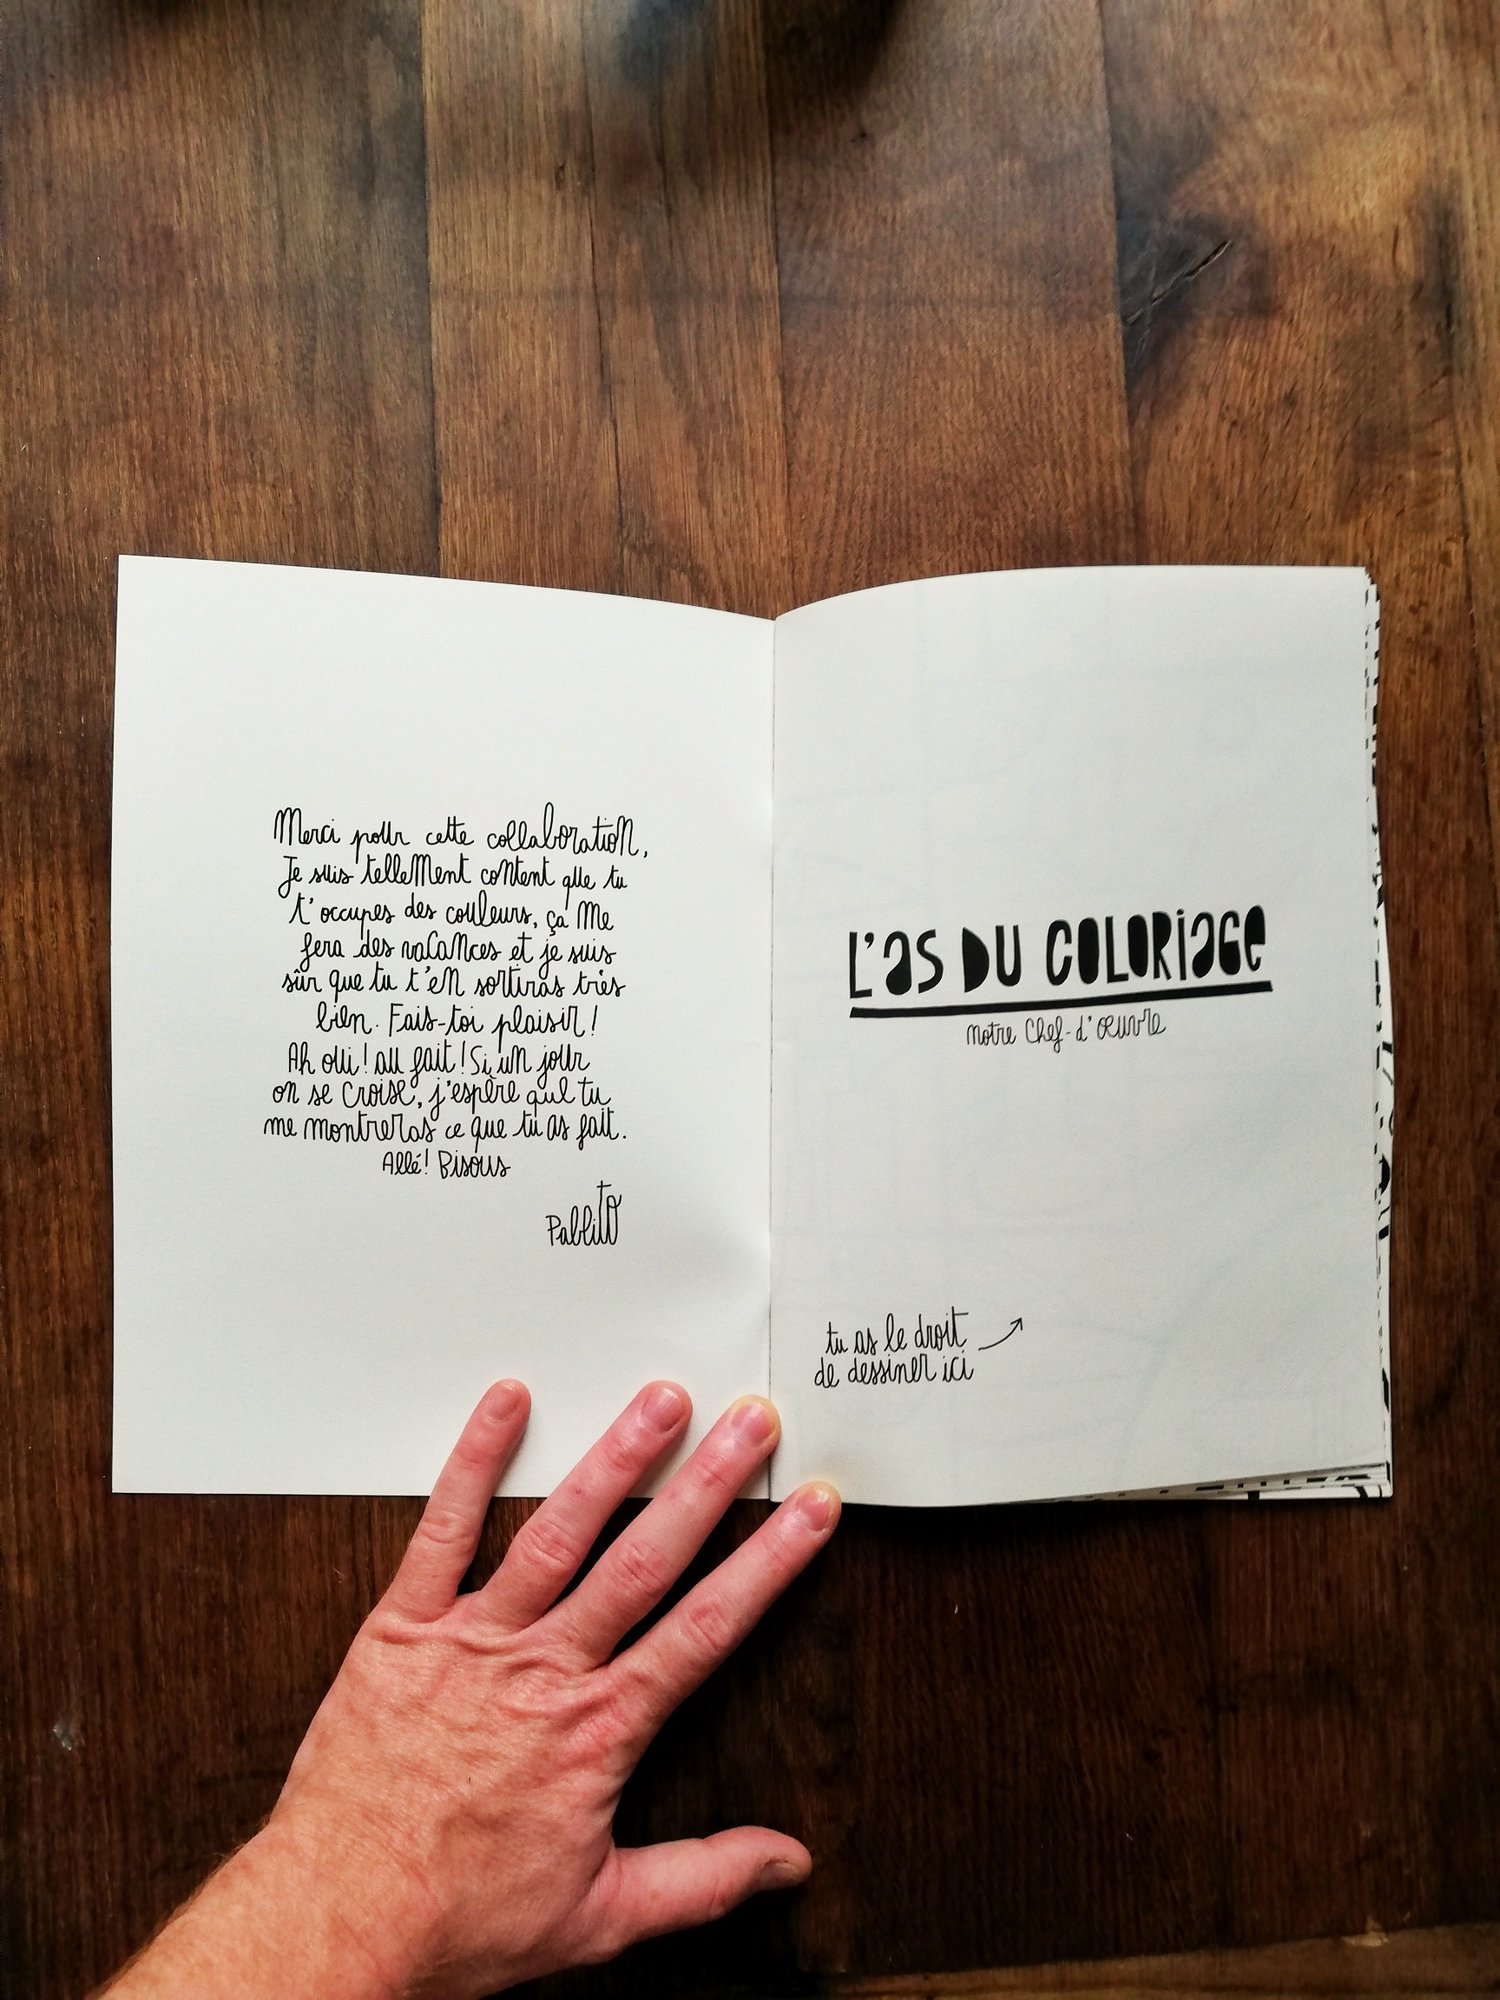 Merci pour cette collaboration,
Je suis tellement content que tu
t'occupes des couleurs, ça me
fera des vacances et je suis
sûr que tu t'en sortiras très
bien. Fais-toi plaisir !
Ah oui ! au fait ! Si un jour
on se croise, j'espère que tu
me montreras ce que tu as fait.
Allé ! Bisous
Pablito
L'AS DU COLORIAGE
notre chef-d'œuvre
tu as le droit
de dessiner ici